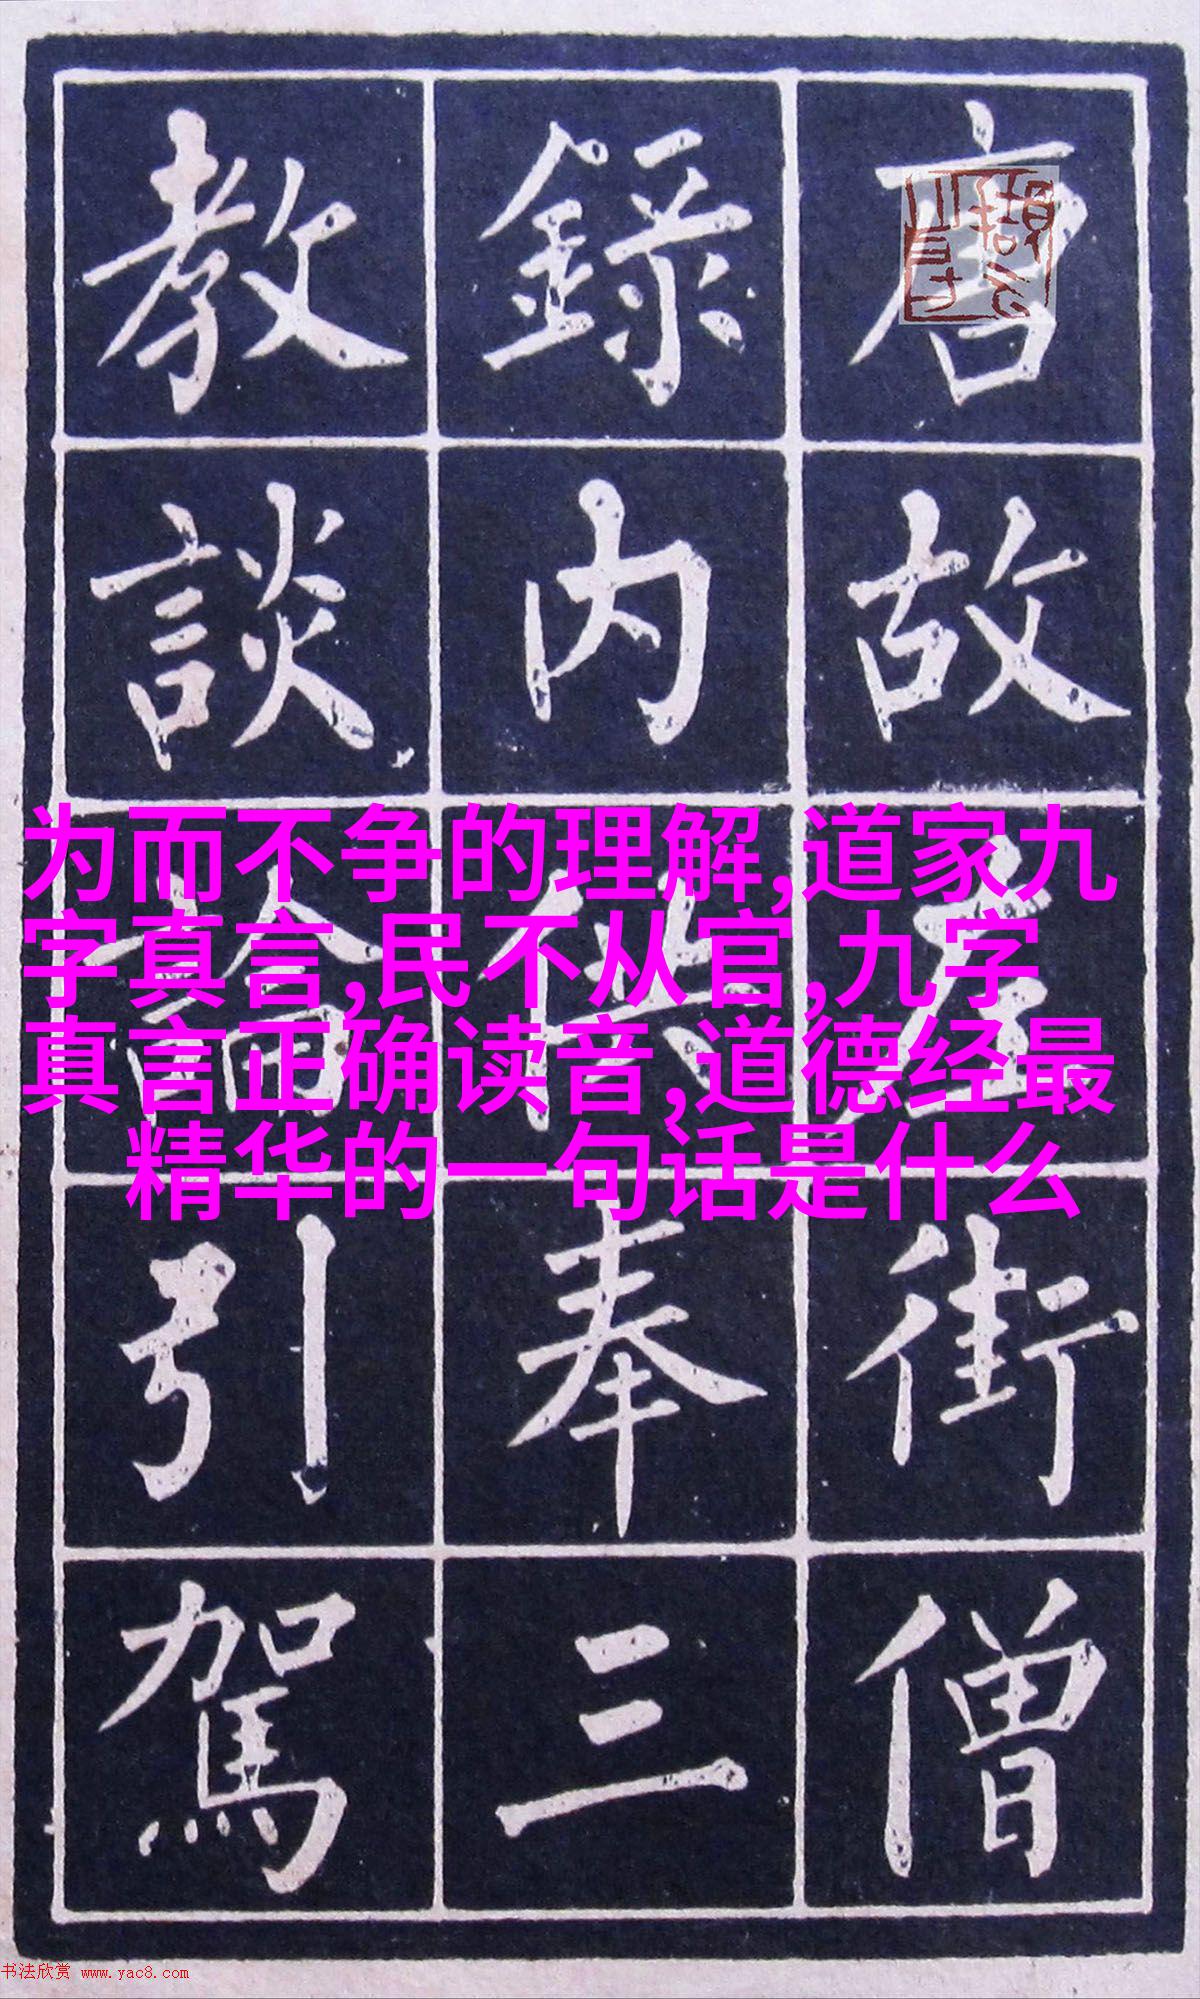 唐故左街僧
錄内供奉三
教談論引駕
为而不争的理解,道家九
字真言,民不从官,九字
真言正确读音,道德经最
精华的一句话是什么
书法欣赏 www.yac8.com